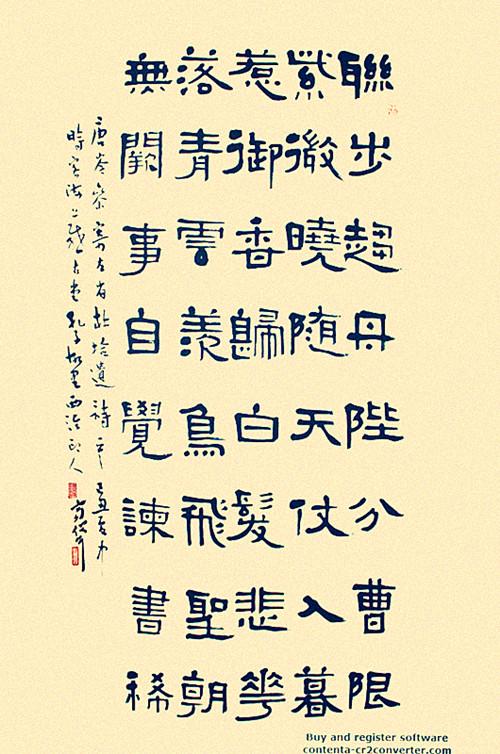 聯步趨丹陛分曹限
紫微曉随天仗入暮
惹御香歸白髮悲花
落青雲羨鳥飛聖朝
無闕事自覺諫書稀
唐岑參寄左省杜拾遺詩
時 孔子故里 人
Buy and register software
contenta-cr2converter.com